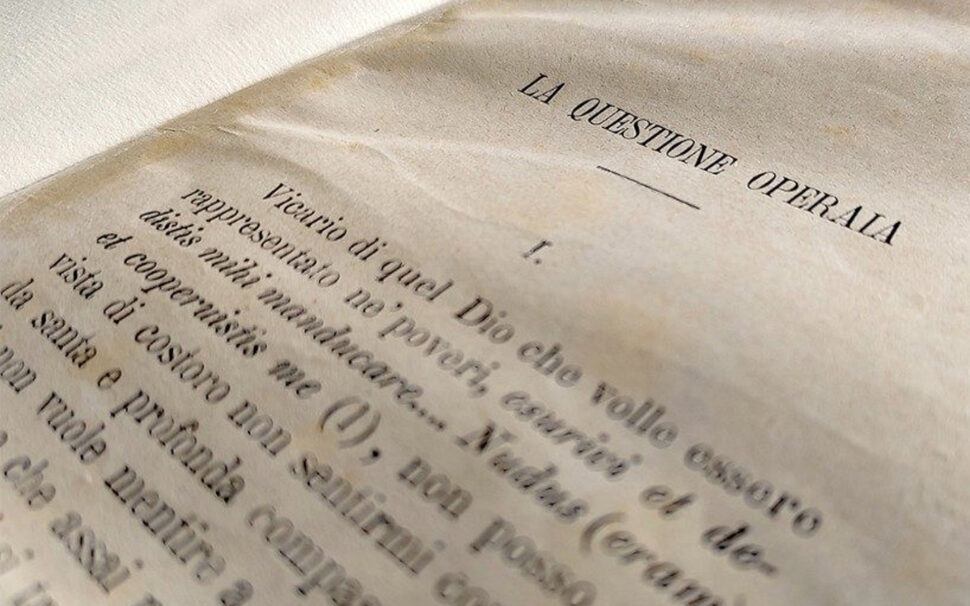 LA QUESTIONE OPERAIA
I.
Vicario di quel Dio che volle essere
rappresentato ne' poveri, esurivi et de-
distis mihi manducare.... Nudus (eram
et cooperuistis me (1), non posso
vista di costoro non sentirmi
da santa e profonda compas
non vuole mentire a
che assai